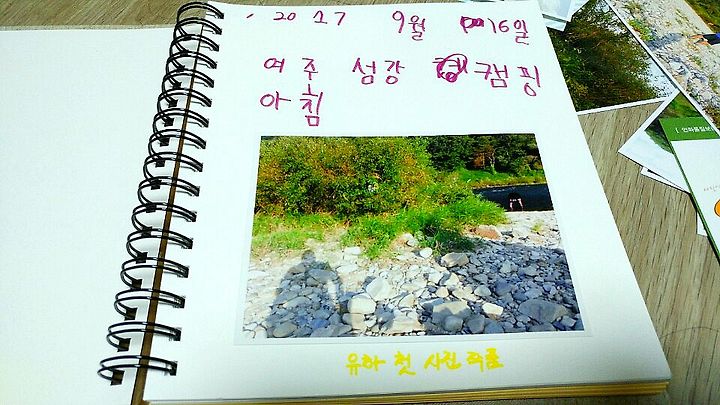 2017 9월 16일
여주 섬강 캠핑
아침
유하 첫 사진 작품
[ 인화품질보